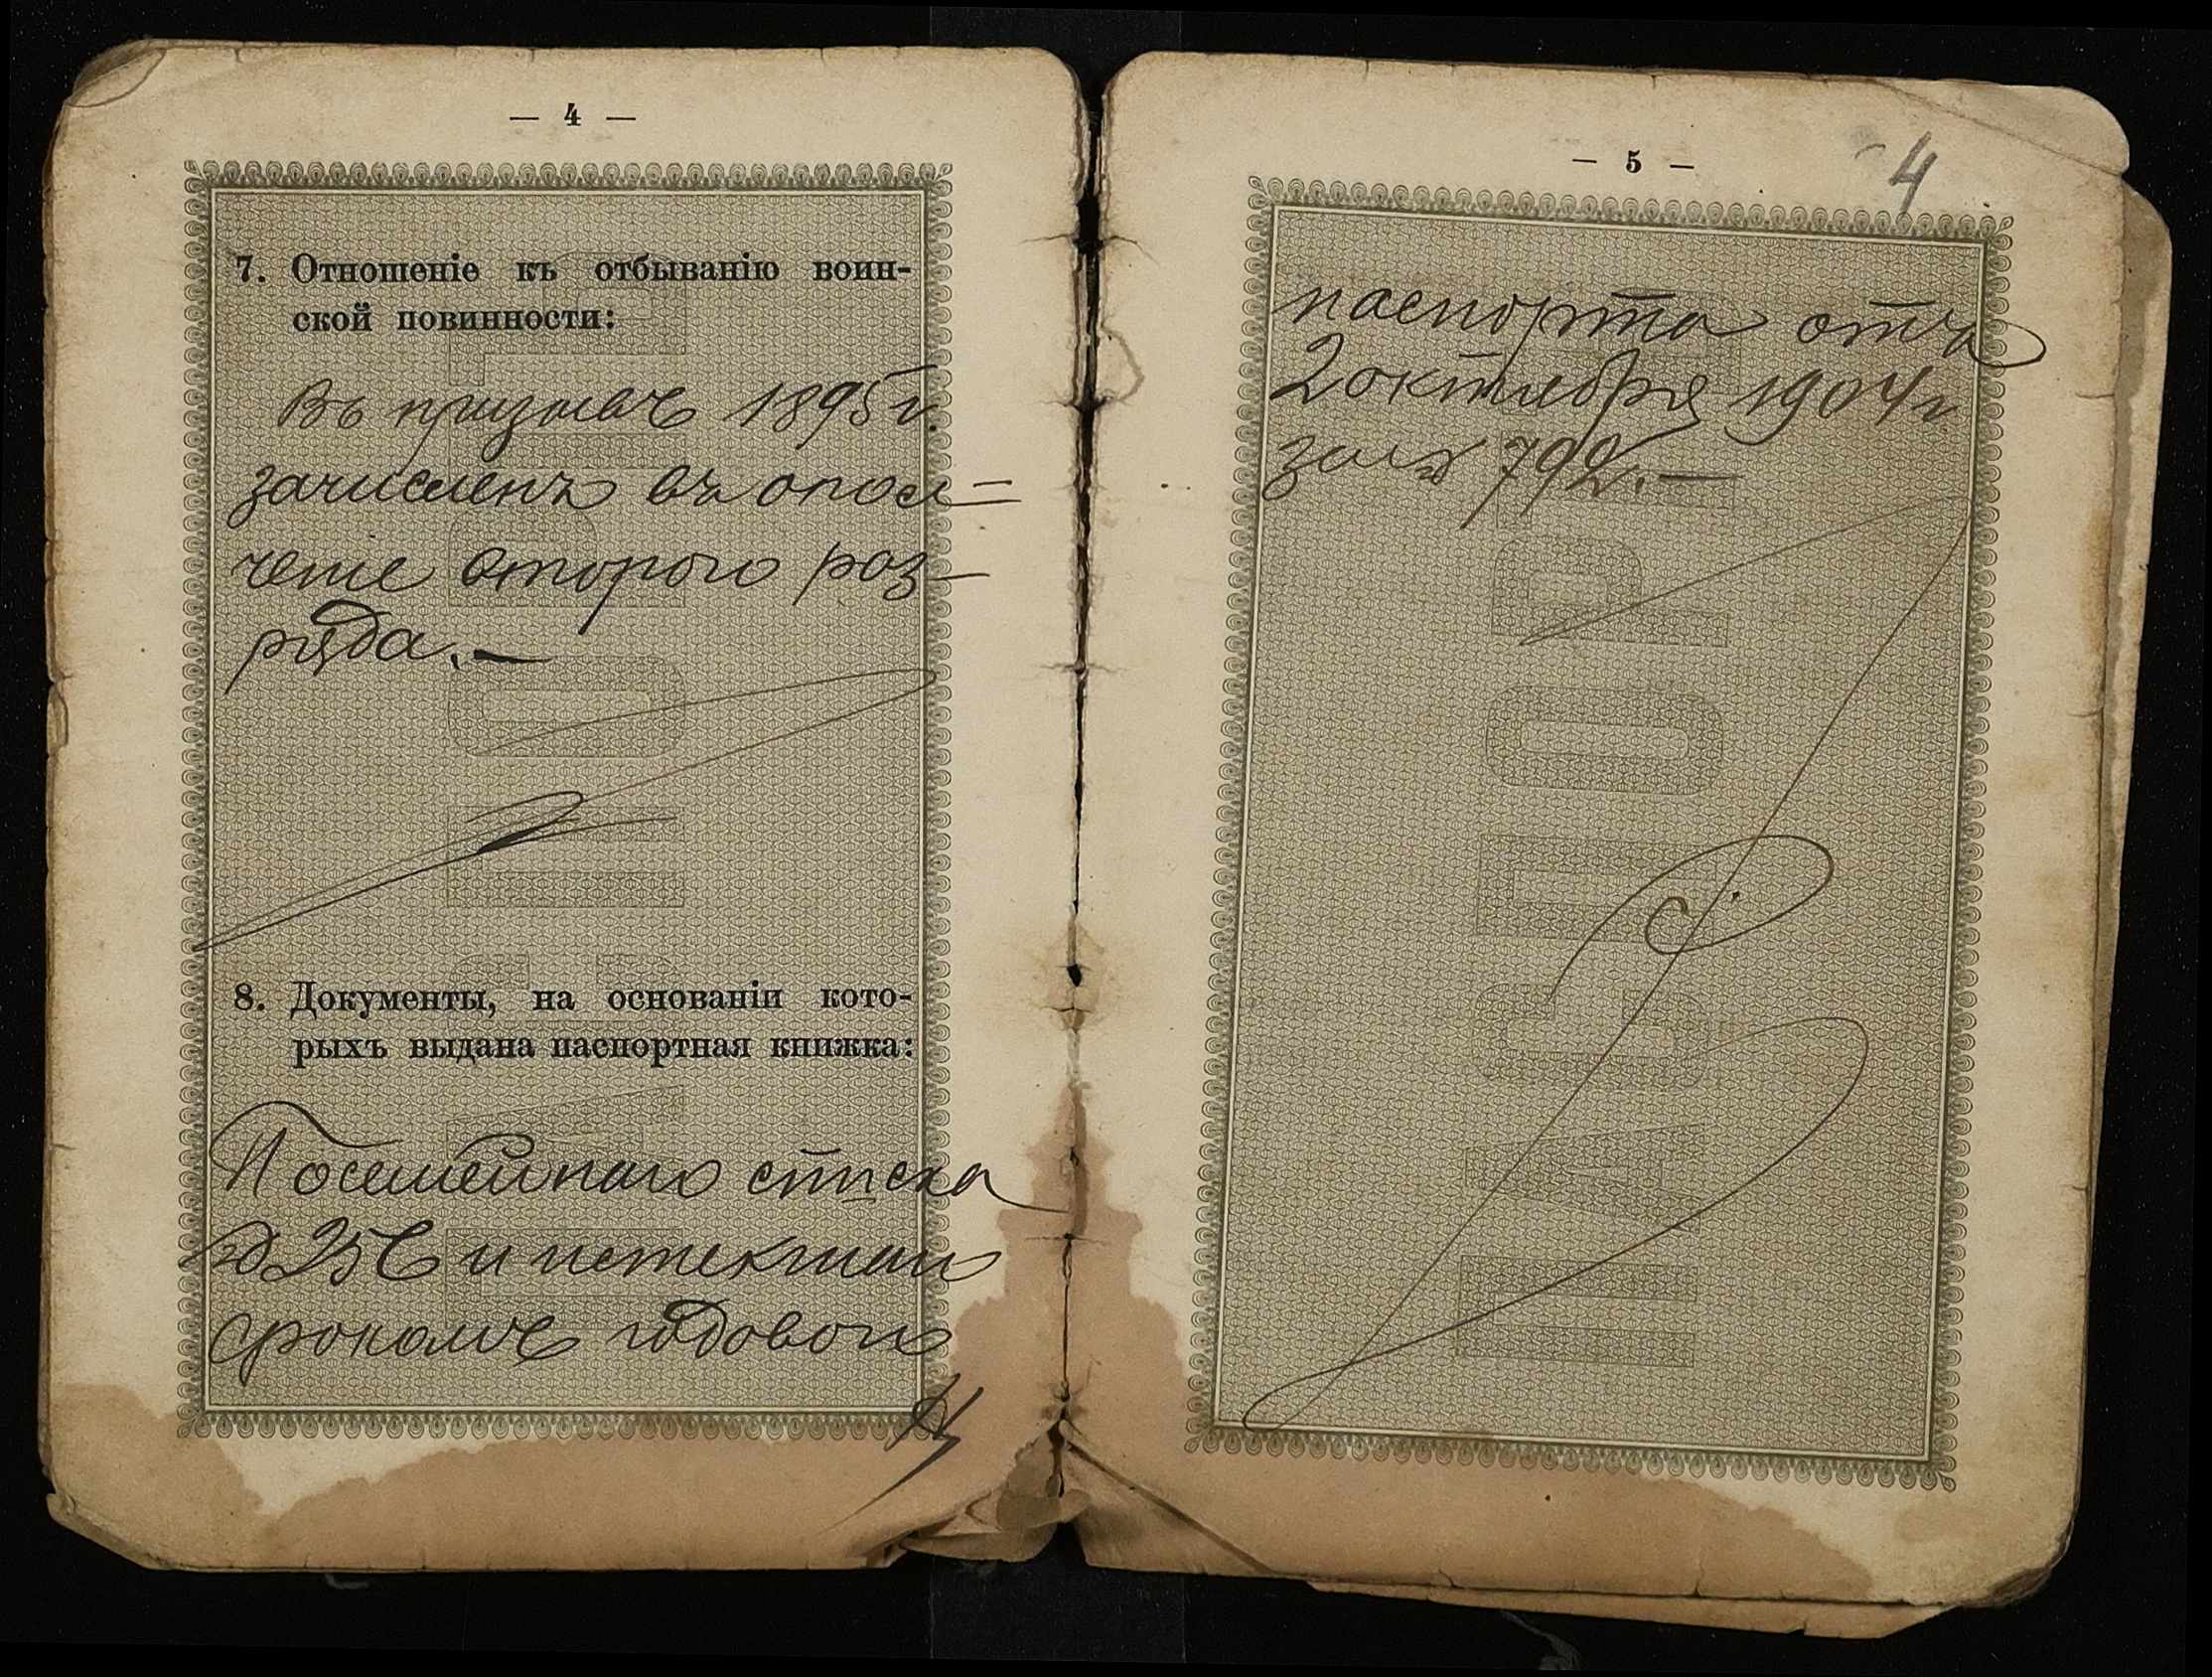 — 4 —
7. Отношеніе къ отбыванію воин-
ской повинности:
Въ призывѣ 1895 г.
зачисленъ въ опол-
ченіе второго раз-
ряда. —
8. Документы, на основаніи кото-
рыхъ выдана паспортная книжка:
Посемейнаго списка
№ 256 и истекшаго
срокомъ годового
— 5 —
4
паспорта отъ
2 октября 1904 г
за № 792. —
ПАСПОРТ
ПАСПОРТ